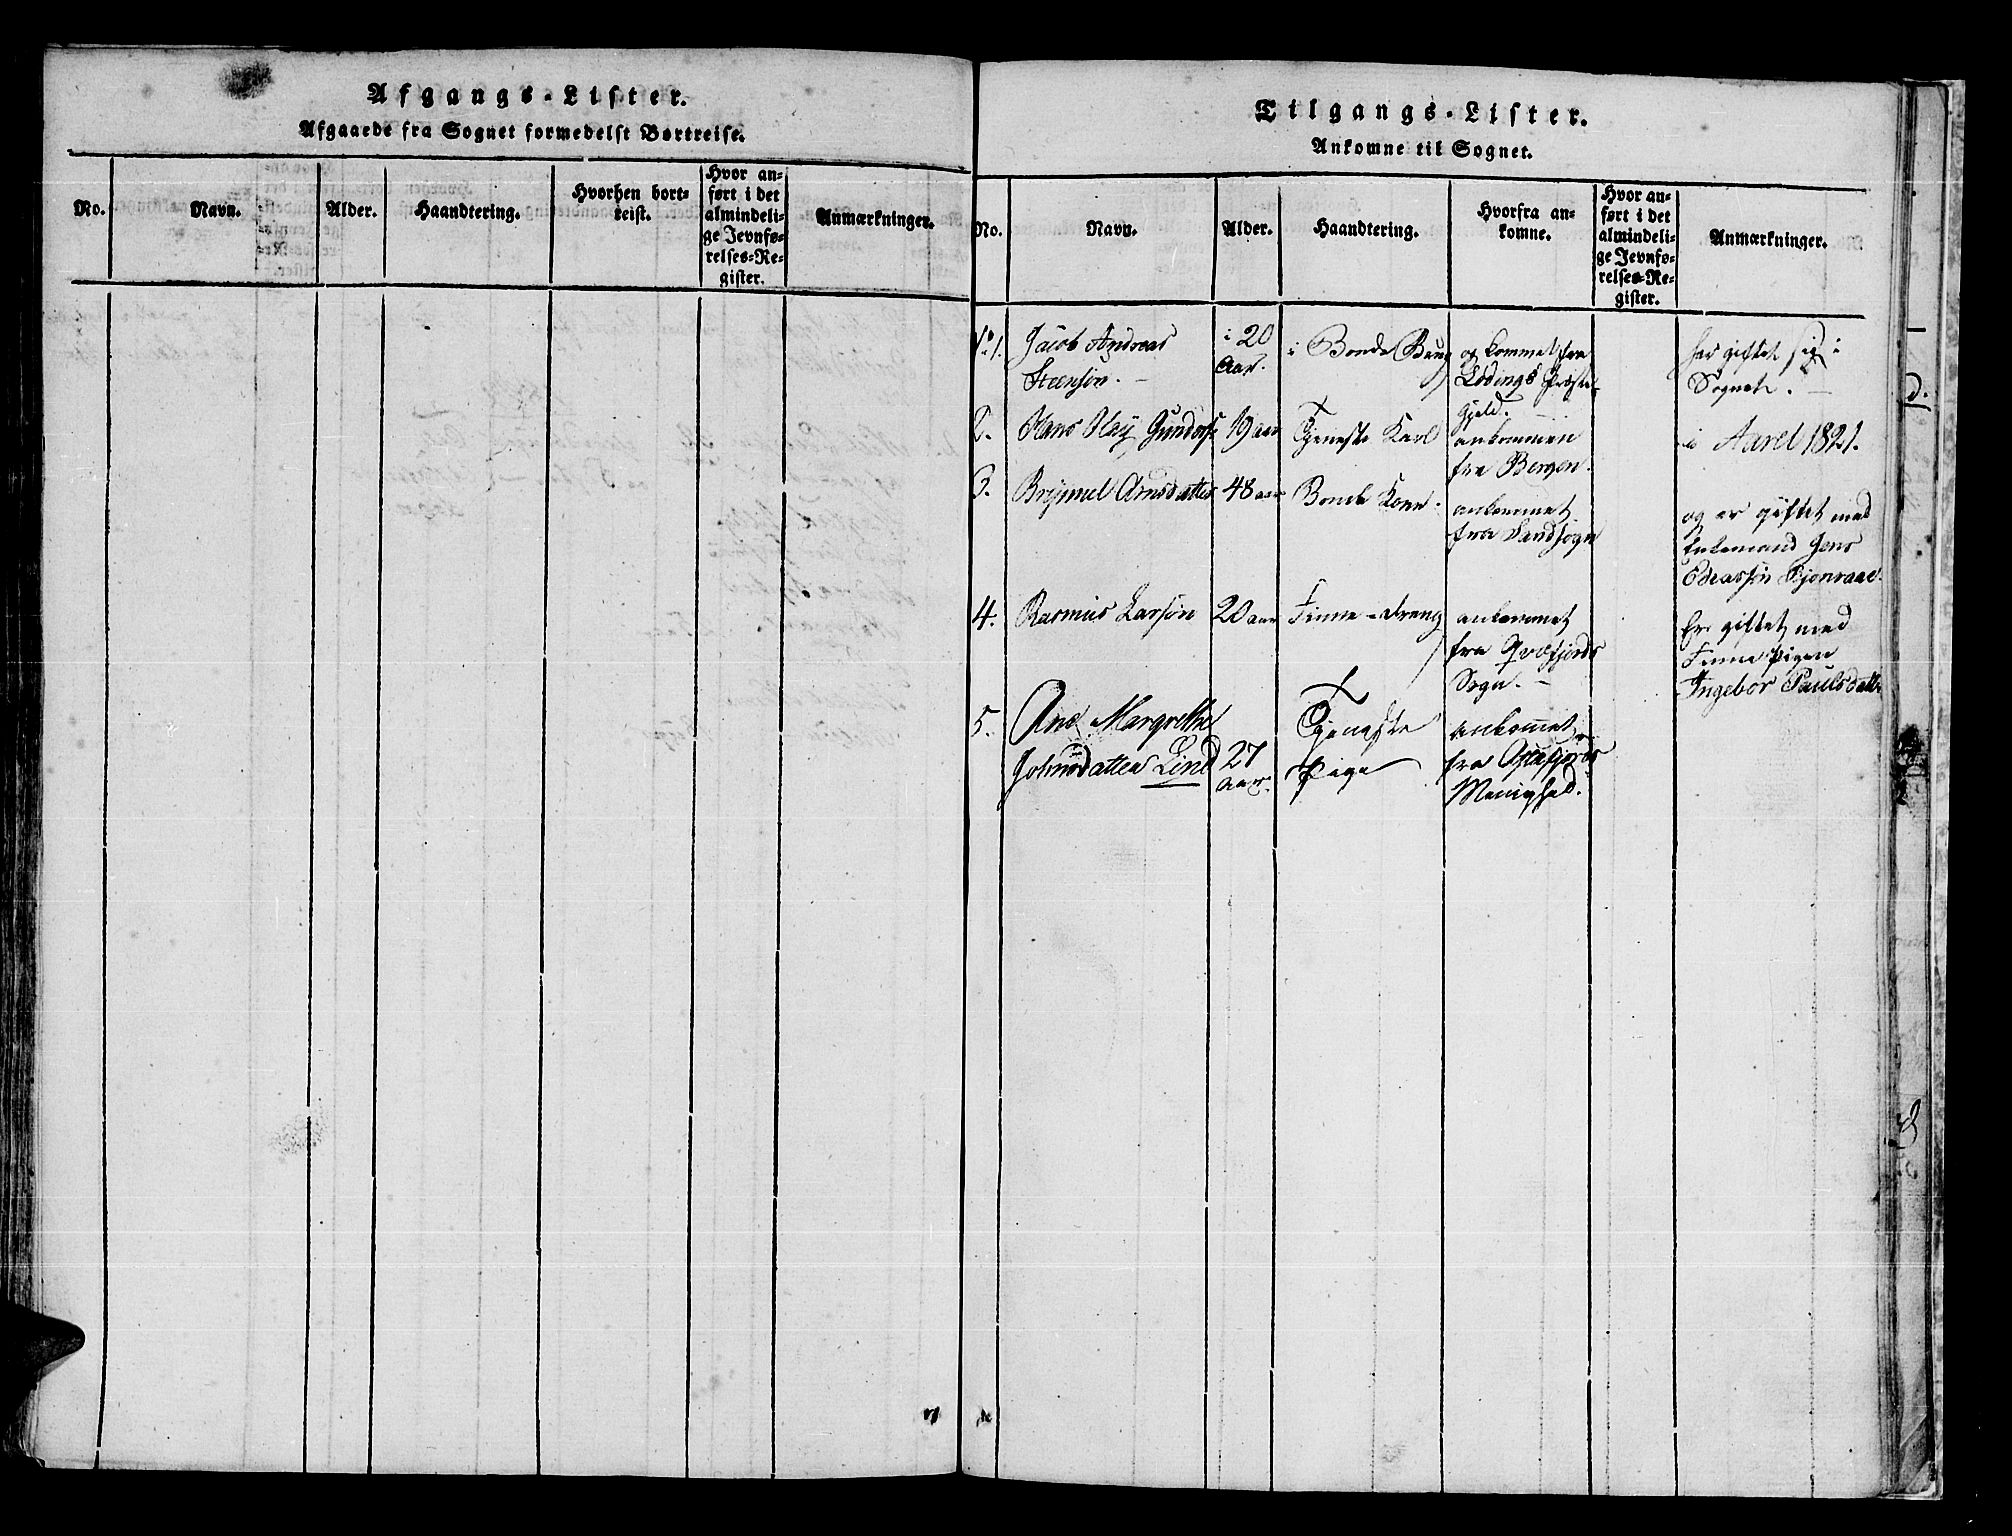 Afgangs-Lister.
Afgaaede fra Sognet formedelst Bortreise.
No.
Navn.
Alder.
Haandtering.
Hvorhen bort-
reist.
Hvor an-
ført i det
almindeli-
ge Jevnfø-
relses-Re-
gister.
Anmærkninger.
Tilgangs-Lister.
Ankomne til Sognet.
No.
Navn.
Alder.
Haandtering.
Hvorfra an-
komne.
Hvor an-
ført i det
almindeli-
ge Jevnfø-
relses-Re-
gister.
Anmærkninger.
No 1.
Jacob Andreas
Steensøn.
i 20
Aar.
i Bonde Brug
og kommet fra
Lødings Præste
Gjeld.
har giftet sig i
Sognet.
2.
Hans Hey
19 aar
Tjeneste Karl
ankommen
fra Bergen.
i Aaret 1821.
3.
Arnsdatter
48 aar
Bonde Kone.
ankommet
fra Sandsogn
og er giftet med
Enkemand Jens
4.
Rasmus Larsøn
20 aar
Finne-dreng
ankommet
fra Qvæfjords
Sogn.
Er giftet med
Finne Pigen
Ingebor Paulsdatter
5.
Ane Margrethe
Johnsdatter Lind
27
aar.
Tjeneste
Pige
ankommet
fra
Menighed.